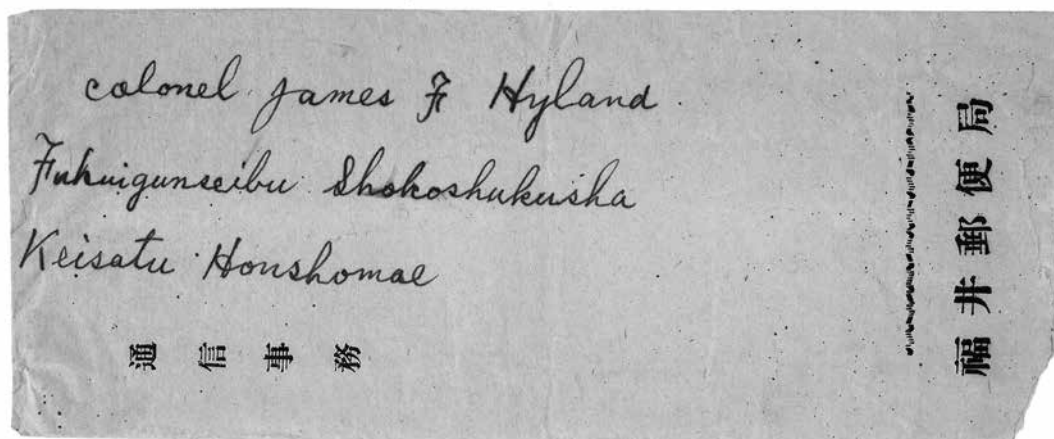 colonel James F Hyland
Fukuigunseibu Shokoshukusha
Keisatu Honshomae
通信事務
福井郵便局